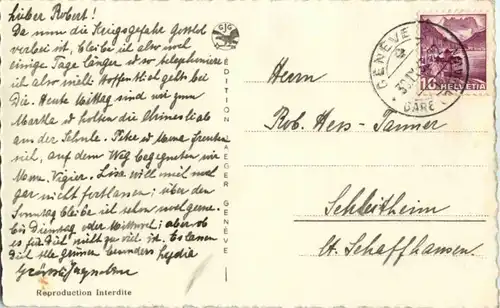 Lieber Robert!
Da nun die Kriegsgefahr Gottlob
vorbei ist, bleibe ich also noch
einige Tage länger u. so telephoniere
ich also nicht. Hoffentlich gehts bei
Dir. Heute Mittag sind wir zum
Martha u. holten die
an der Schule. Peter u. Mama freuten
sich, auf dem Weg begegneten wir
Mme. Vigier. Lisa will mich noch
gar nicht fortlassen; über den
Sonntag bleibe ich schon noch gerne.
bis Dienstag oder Mittwoch; aber ob
es für Dich nicht zu viel ist. Es lassen
Dich alle grüssen besonders Lydia
EDITION JAEGER GENÈVE
Reproduction Interdite
GENÈVE
GARE
10 HELVETIA
Herrn
Rob. Hess-Tanner
Schleitheim
Ct. Schaffhausen.